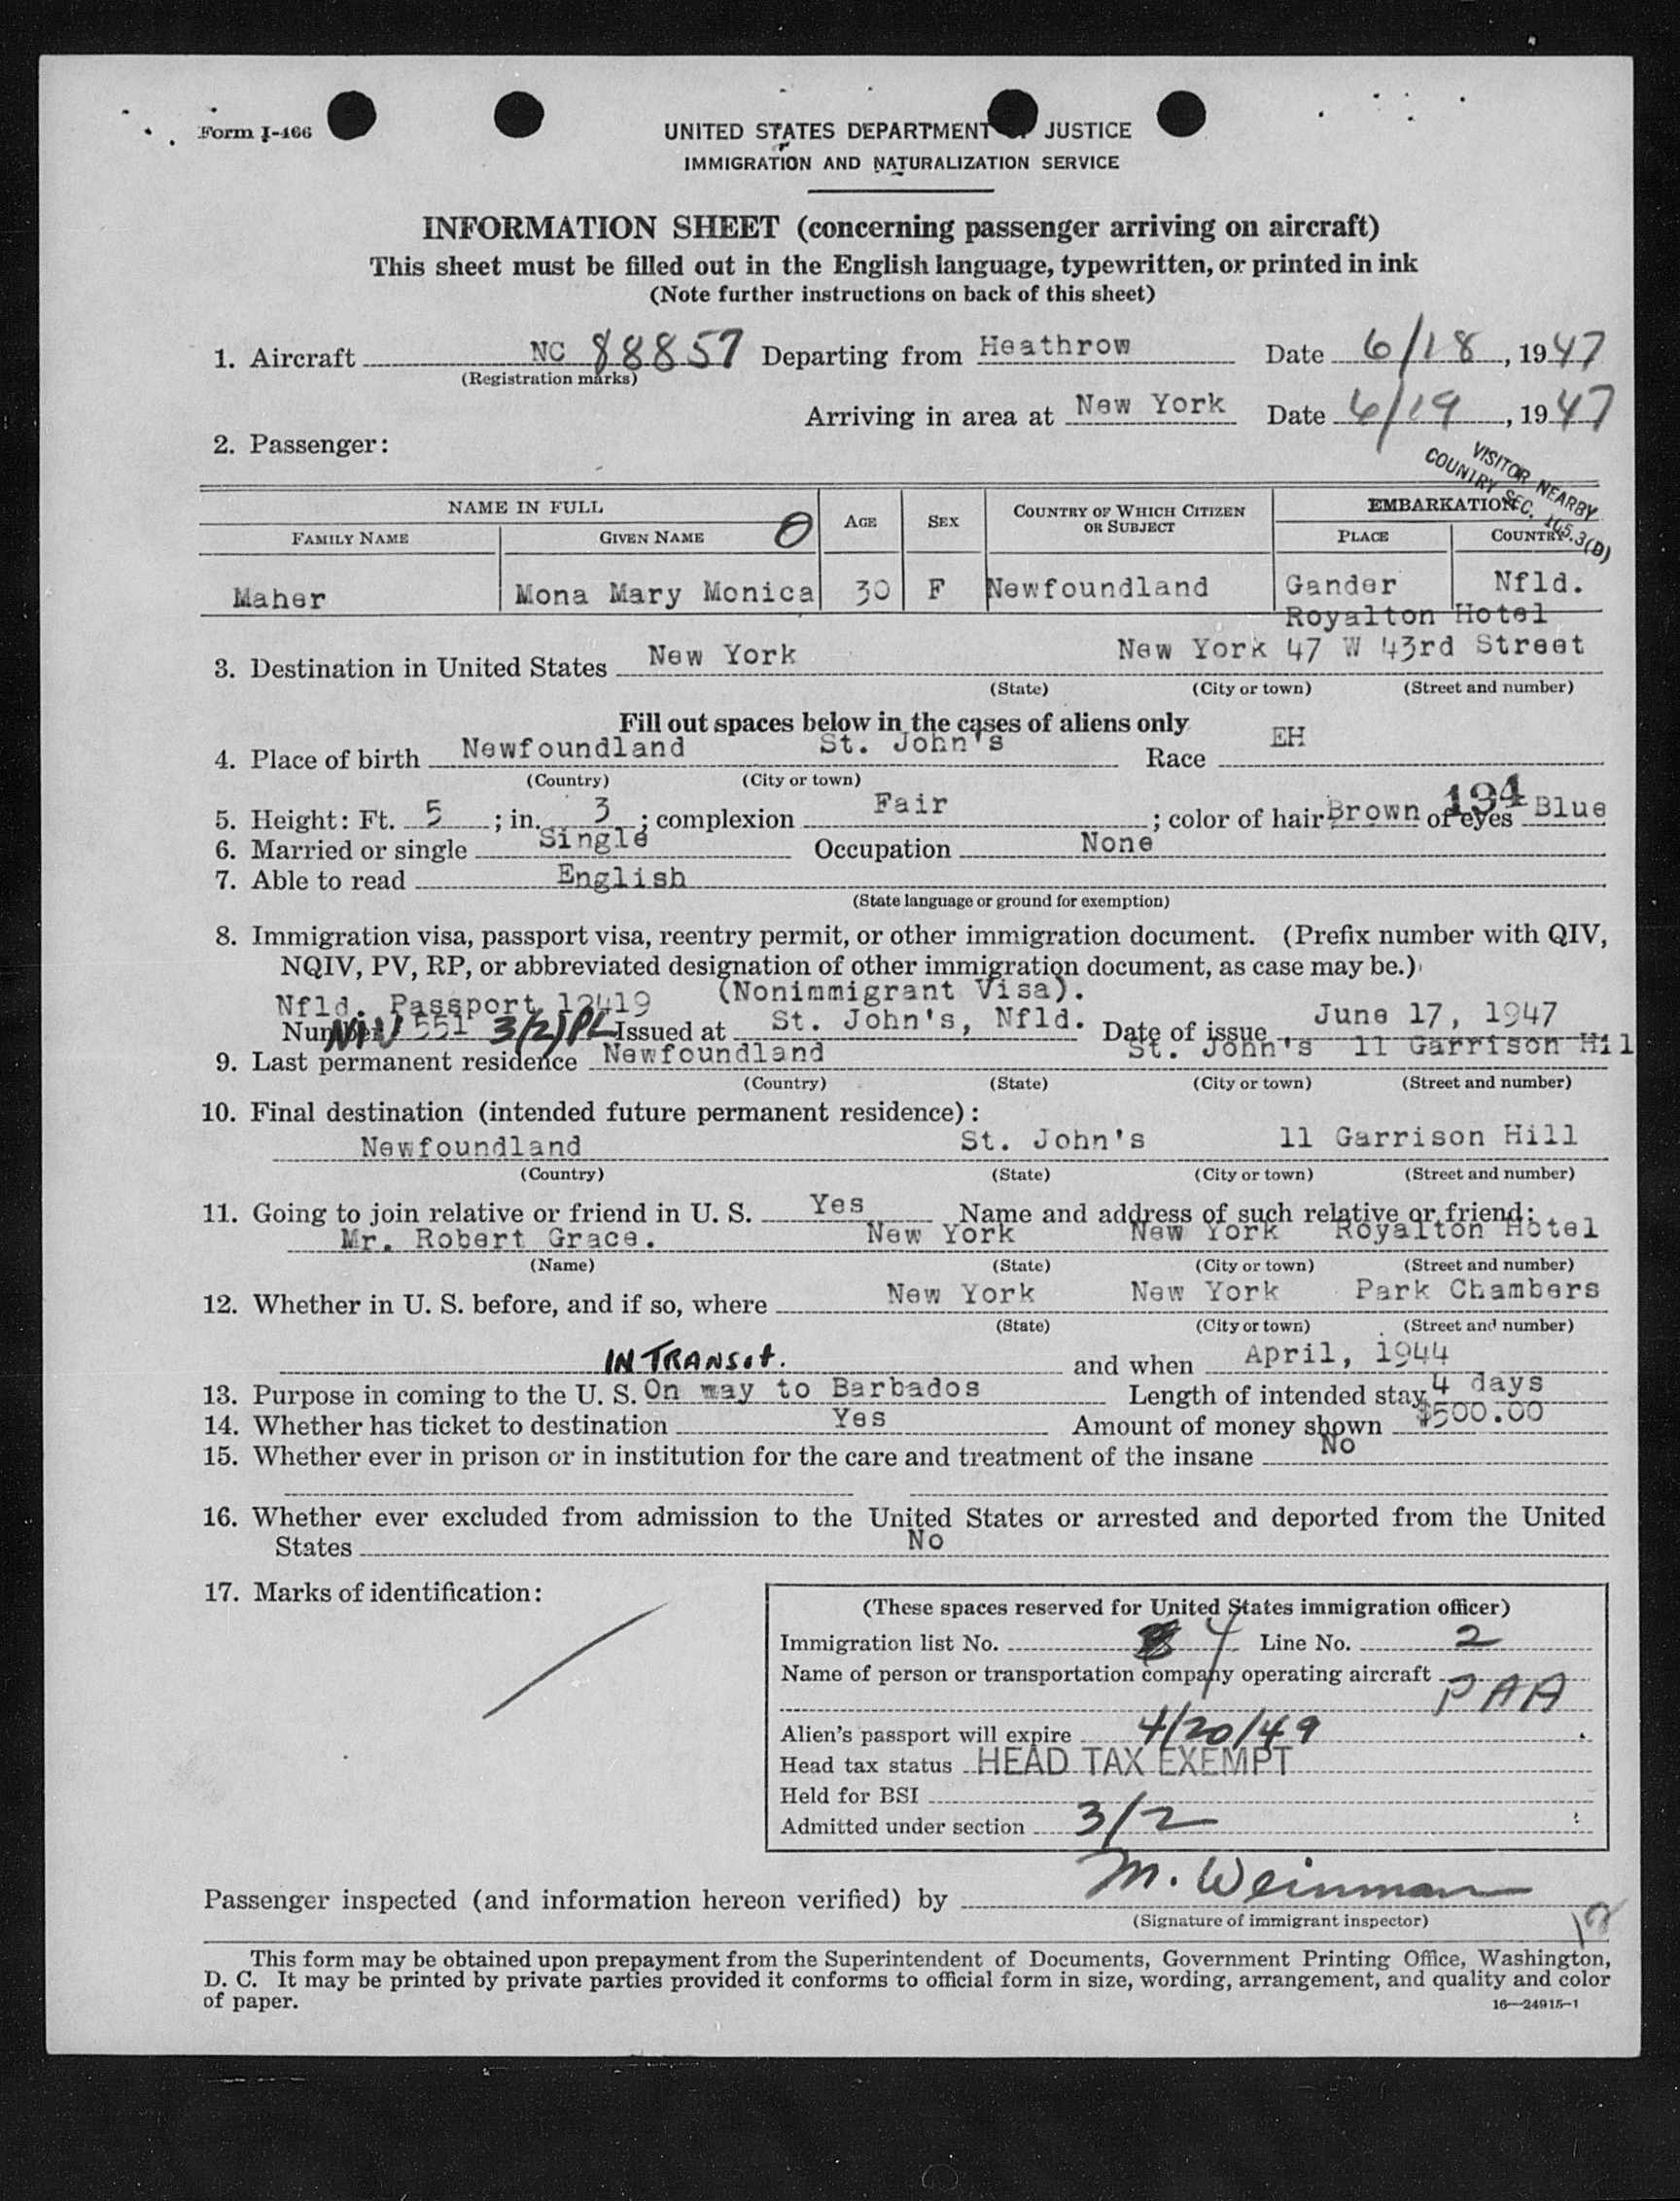 Form I-466
UNITED STATES DEPARTMENT OF JUSTICE
IMMIGRATION AND NATURALIZATION SERVICE
INFORMATION SHEET (concerning passenger arriving on aircraft)
This sheet must be filled out in the English language, typewritten, or printed in ink
(Note further instructions on back of this sheet)
1. Aircraft NC 88857 Departing from Heathrow Date 6/18, 1947
(Registration marks)
Arriving in area at New York Date 6/19, 1947
2. Passenger:
VISITOR NEARBY
COUNTRY SEC. 165.3(D)
NAME IN FULL AGE SEX COUNTRY OF WHICH CITIZEN OR SUBJECT EMBARKATION
FAMILY NAME GIVEN NAME PLACE COUNTRY
Maher Mona Mary Monica 30 F Newfoundland Gander Nfld.
Royalton Hotel
3. Destination in United States New York New York 47 W 43rd Street
(State) (City or town) (Street and number)
Fill out spaces below in the cases of aliens only
4. Place of birth Newfoundland St. John's Race EH
(Country) (City or town)
194
5. Height: Ft. 5; in. 3; complexion Fair; color of hair Brown of eyes Blue
6. Married or single Single Occupation None
7. Able to read English
(State language or ground for exemption)
8. Immigration visa, passport visa, reentry permit, or other immigration document. (Prefix number with QIV,
NQIV, PV, RP, or abbreviated designation of other immigration document, as case may be.)
Nfld. Passport 12419 (Nonimmigrant Visa).
Number NIV 551 3(2) PL Issued at St. John's, Nfld. Date of issue June 17, 1947
9. Last permanent residence Newfoundland St. John's 11 Garrison Hil
(Country) (State) (City or town) (Street and number)
10. Final destination (intended future permanent residence):
Newfoundland St. John's 11 Garrison Hill
(Country) (State) (City or town) (Street and number)
11. Going to join relative or friend in U. S. Yes Name and address of such relative or friend:
Mr. Robert Grace. New York New York Royalton Hotel
(Name) (State) (City or town) (Street and number)
12. Whether in U. S. before, and if so, where New York New York Park Chambers
(State) (City or town) (Street and number)
IN TRANSIT. and when April, 1944
13. Purpose in coming to the U. S. On way to Barbados Length of intended stay 4 days
14. Whether has ticket to destination Yes Amount of money shown $500.00
15. Whether ever in prison or in institution for the care and treatment of the insane No
16. Whether ever excluded from admission to the United States or arrested and deported from the United
States No
17. Marks of identification:
(These spaces reserved for United States immigration officer)
Immigration list No. 4 Line No. 2
Name of person or transportation company operating aircraft
PAA
Alien's passport will expire 4/20/49
Head tax status HEAD TAX EXEMPT
Held for BSI
Admitted under section 3/2
Passenger inspected (and information hereon verified) by M. Weinman
(Signature of immigrant inspector)
This form may be obtained upon prepayment from the Superintendent of Documents, Government Printing Office, Washington,
D. C. It may be printed by private parties provided it conforms to official form in size, wording, arrangement, and quality and color
of paper.
16—24915-1